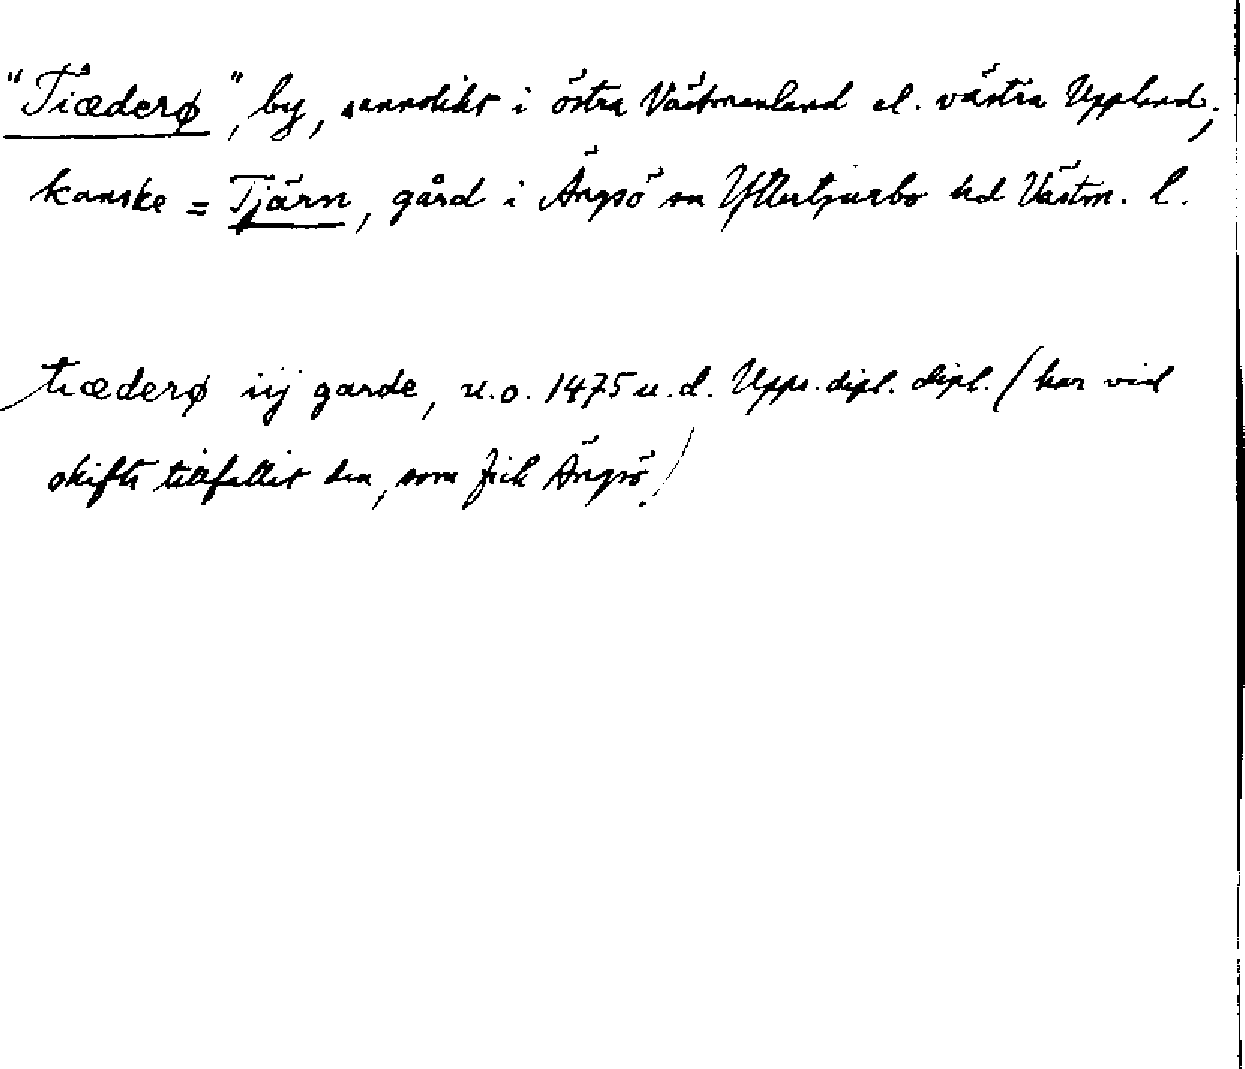 "Tiæderø", by, sannolikt i östra Västmanland el. västra Uppland;
kanske = Tjärn, gård i Ängsö sn Yttertjurbo hd Västm. l.
tiæderø iij garde, u.o. 1475 u.d. Upps. dipl. dipl. (har vid
skifte tillfallit den, som fick Ängsö.)